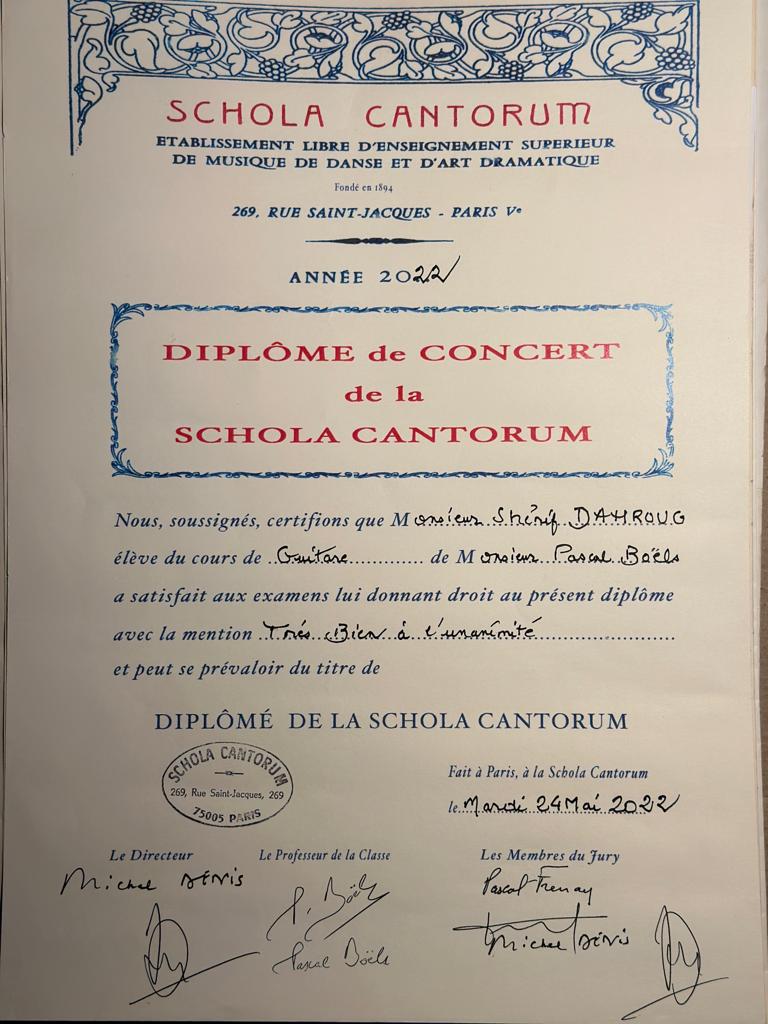 SCHOLA CANTORUM
ETABLISSEMENT LIBRE D'ENSEIGNEMENT SUPERIEUR
DE MUSIQUE DE DANSE ET D'ART DRAMATIQUE
Fondé en 1894
269, RUE SAINT-JACQUES - PARIS Ve
ANNÉE 2022
DIPLÔME de CONCERT
de la
SCHOLA CANTORUM
Nous, soussignés, certifions que Monsieur Shérif DAHROUG
élève du cours de Guitare de Monsieur Pascal Boëls
a satisfait aux examens lui donnant droit au présent diplôme
avec la mention Trés Bien à l'unanimité
et peut se prévaloir du titre de
DIPLÔMÉ DE LA SCHOLA CANTORUM
SCHOLA CANTORUM
269, Rue Saint-Jacques, 269
75005 PARIS
Fait à Paris, à la Schola Cantorum
le Mardi 24 Mai 2022
Le Directeur Le Professeur de la Classe Les Membres du Jury
Michel DENIS P. Boëls Pascal Frenay
Pascal Boëls Michel DENIS